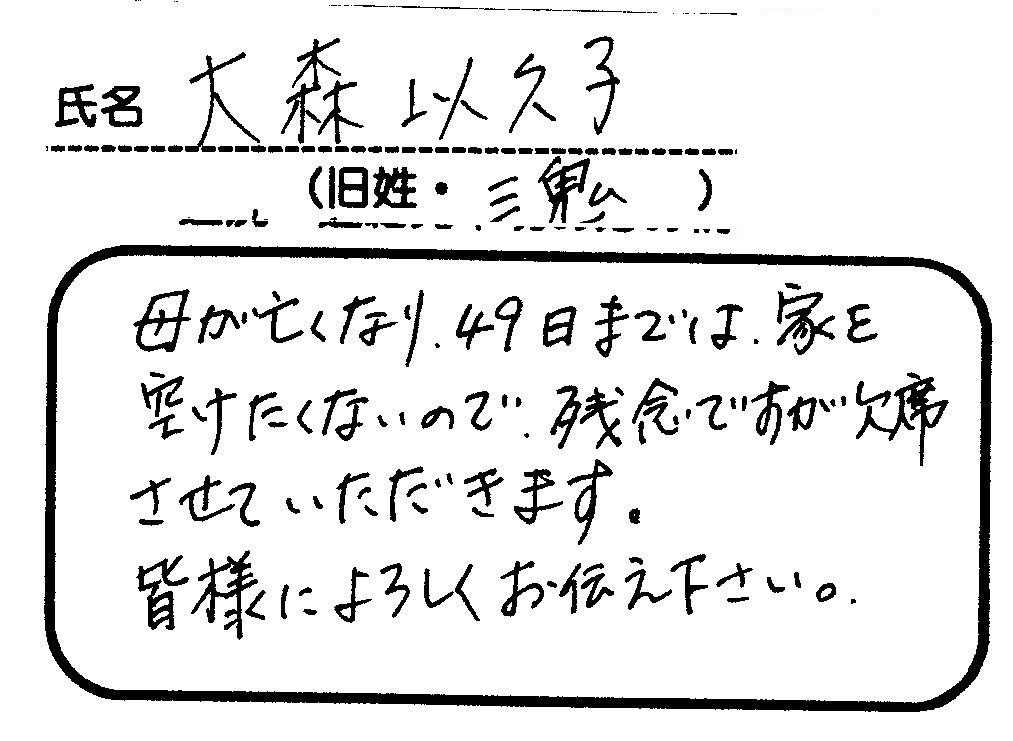 氏名 大森 以久子
(旧姓・三鬼)
母が亡くなり、49日までは、家を
空けたくないので、残念ですが欠席
させていただきます。
皆様によろしくお伝え下さい。